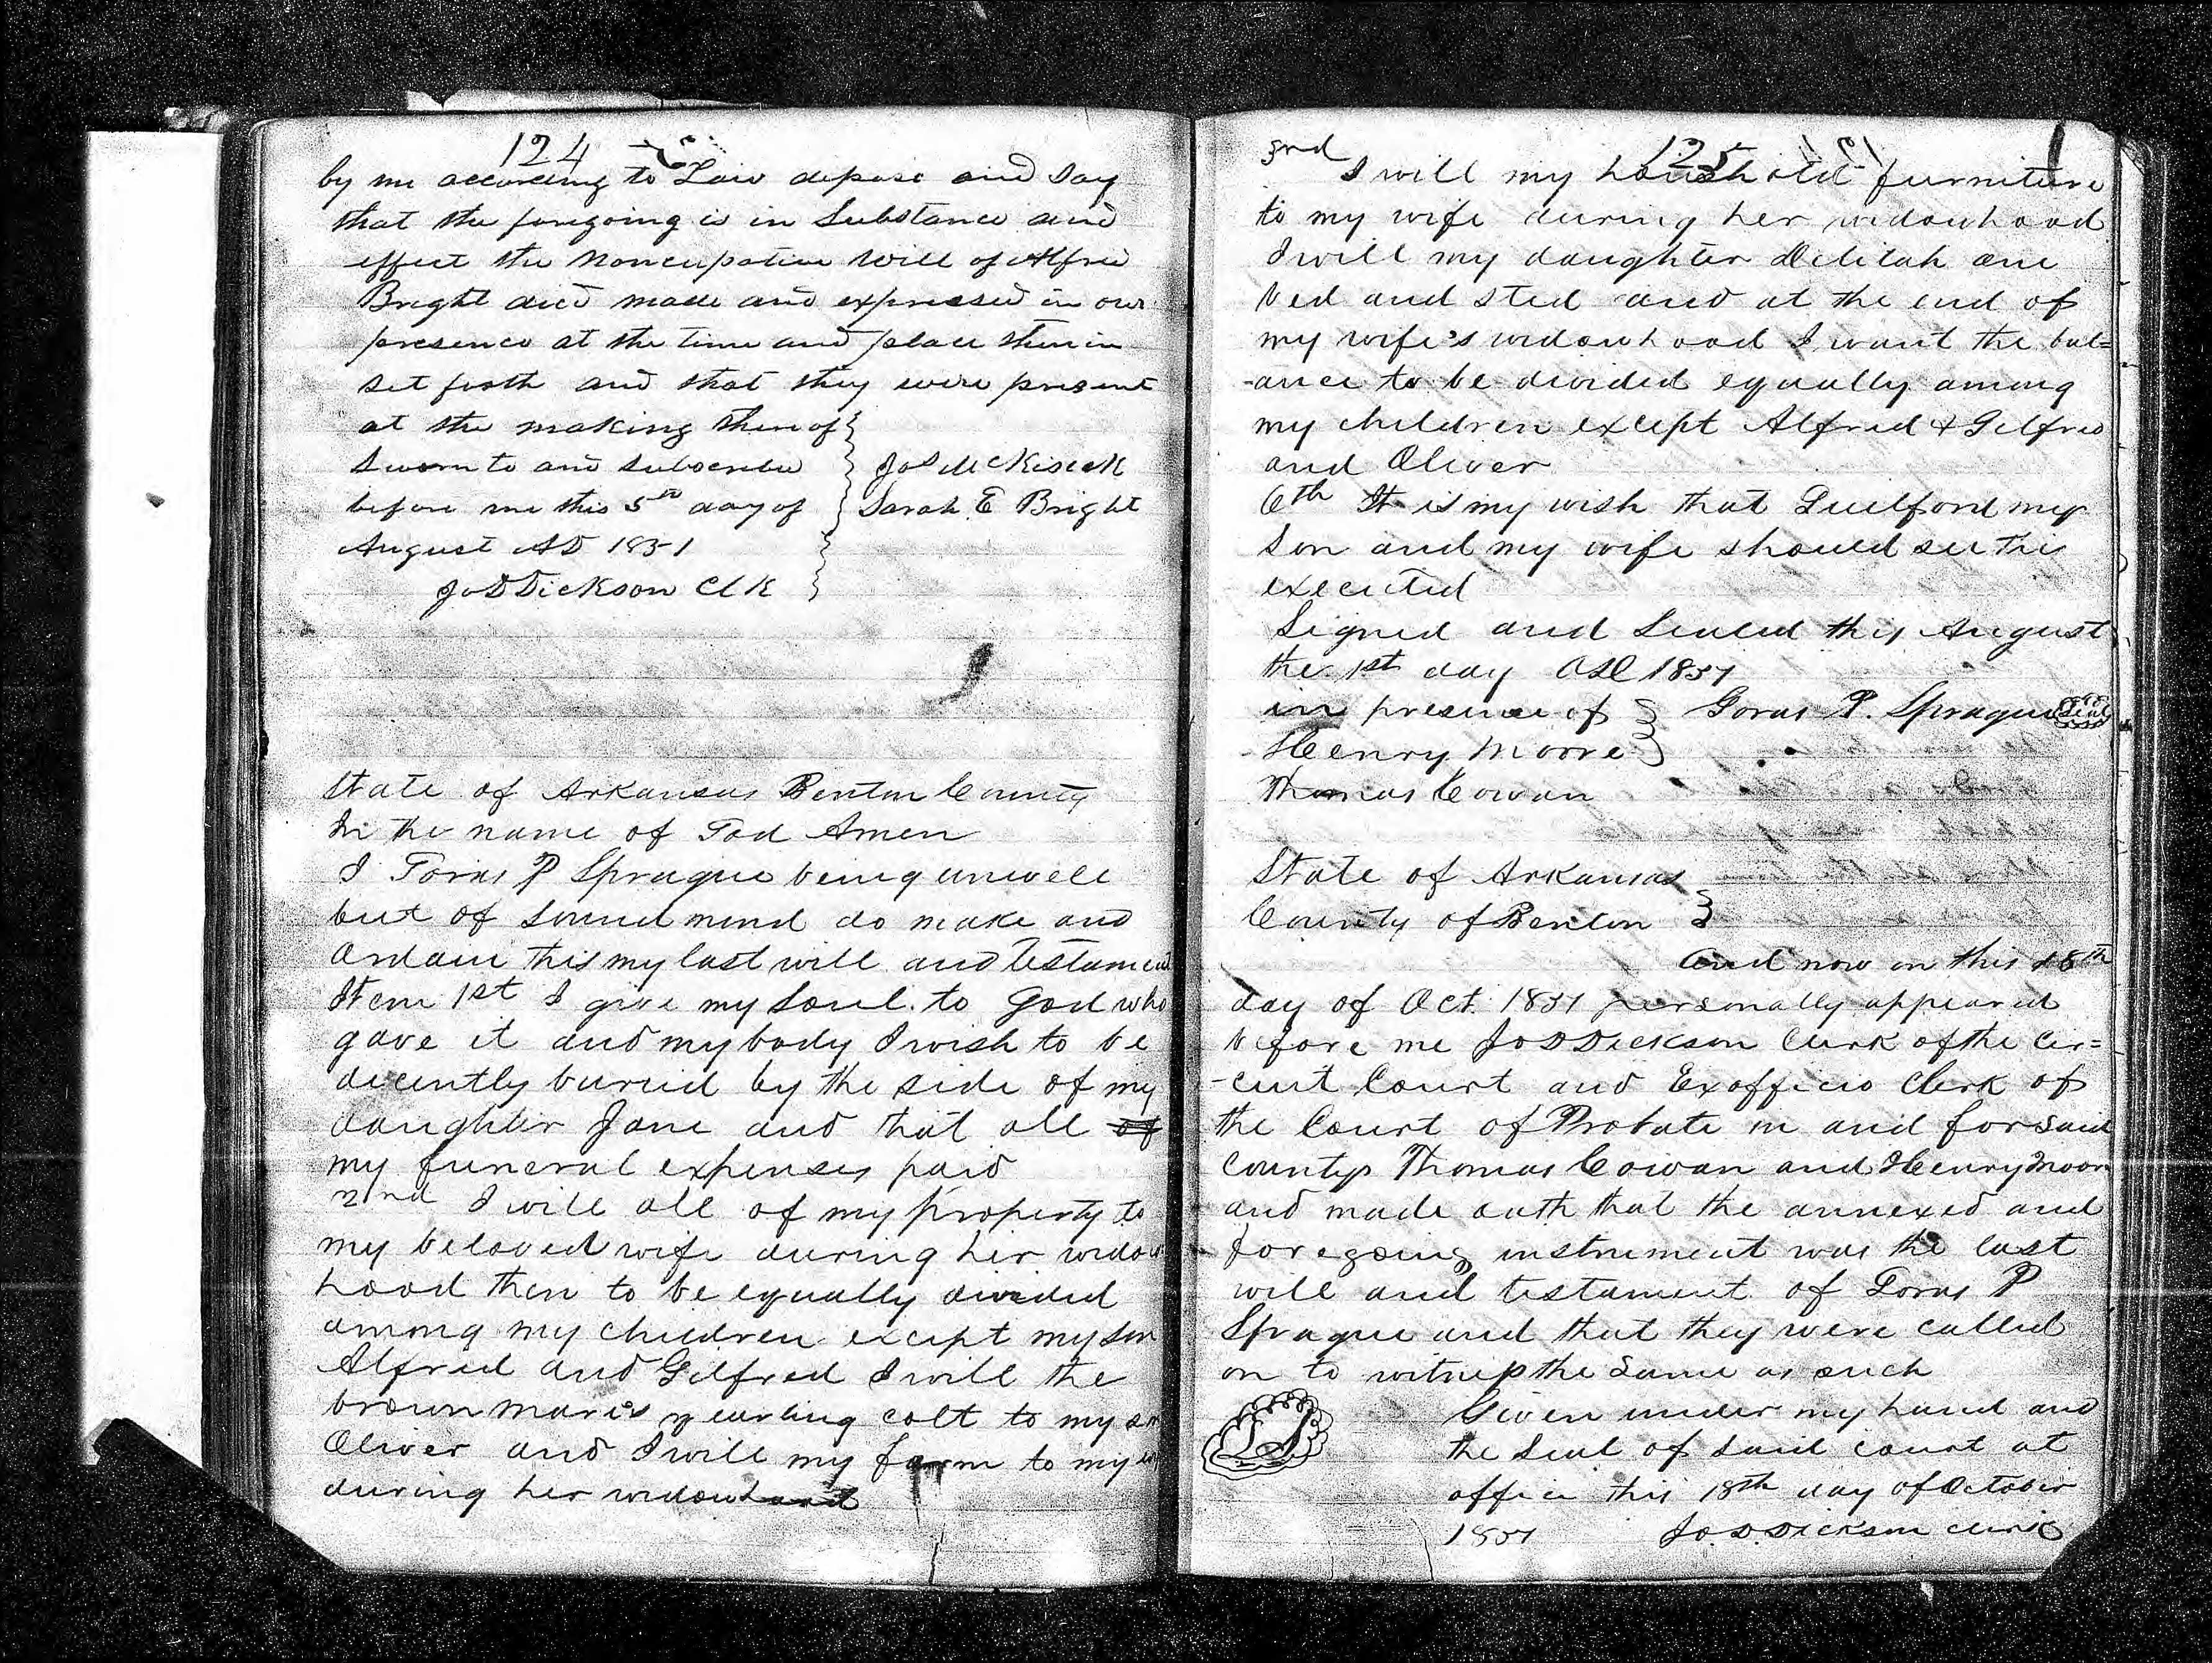 124
by me according to Law depose and Say
that the foregoing is in Substance and
effect the Noncupative Will of Alfred
Bright died made and expressed in our
presence at the time and place therein
set forth and that they were present
at the making thereof
Sworn to and Subscribed
before me this 5th day of
August AD 1851
Jo D Dickson Clk
Jas McKisick
Sarah E Bright
State of Arkansas Benton County
In the name of God Amen
I P Sprague being unwell
but of sound mind do make and
Ordain this my last will and testament
Item 1st I give my Soul to God who
gave it and my body I wish to be
decently buried by the side of my
daughter Jane and that all of
my funeral expenses paid
2nd I will all of my property to
my beloved wife during her widow
hood then to be equally divided
among my children except my son
Alfred and Gilfred I will the
brown mare's yearling colt to my
Oliver and I will my farm to my
during her widowhood
125
3rd
I will my houshold furniture
to my wife during her widowhood
I will my daughter Delilah one
bed and sted and at the end of
my wife's widowhood I want the bal=
-ance to be divided equally among
my children except Alfred & Gilfred
and Oliver
6th It is my wish that Guilford my
Son and my wife should see this
executed
Signed and Sealed this August
the 1st day AD 1851
in presence of
P. Sprague Seal
Henry Moore
Thomas Cowan
State of Arkansas
County of Benton
And now on this 18th
day of Oct. 1851 personally appeared
before me Jo D Dickson Clerk of the Cir=
-cuit Court and Exofficio Clerk of
the Court of Probate in and for said
County Thomas Cowan and Henry Moor
and made oath that the annexed and
foregoing instrument was the last
will and testament of P
Sprague and that they were called
on to witness the same as such
Given under my hand and
the Seal of said court at
office this 18th day of October
1851 Jo. D. Dickson Clerk
LS